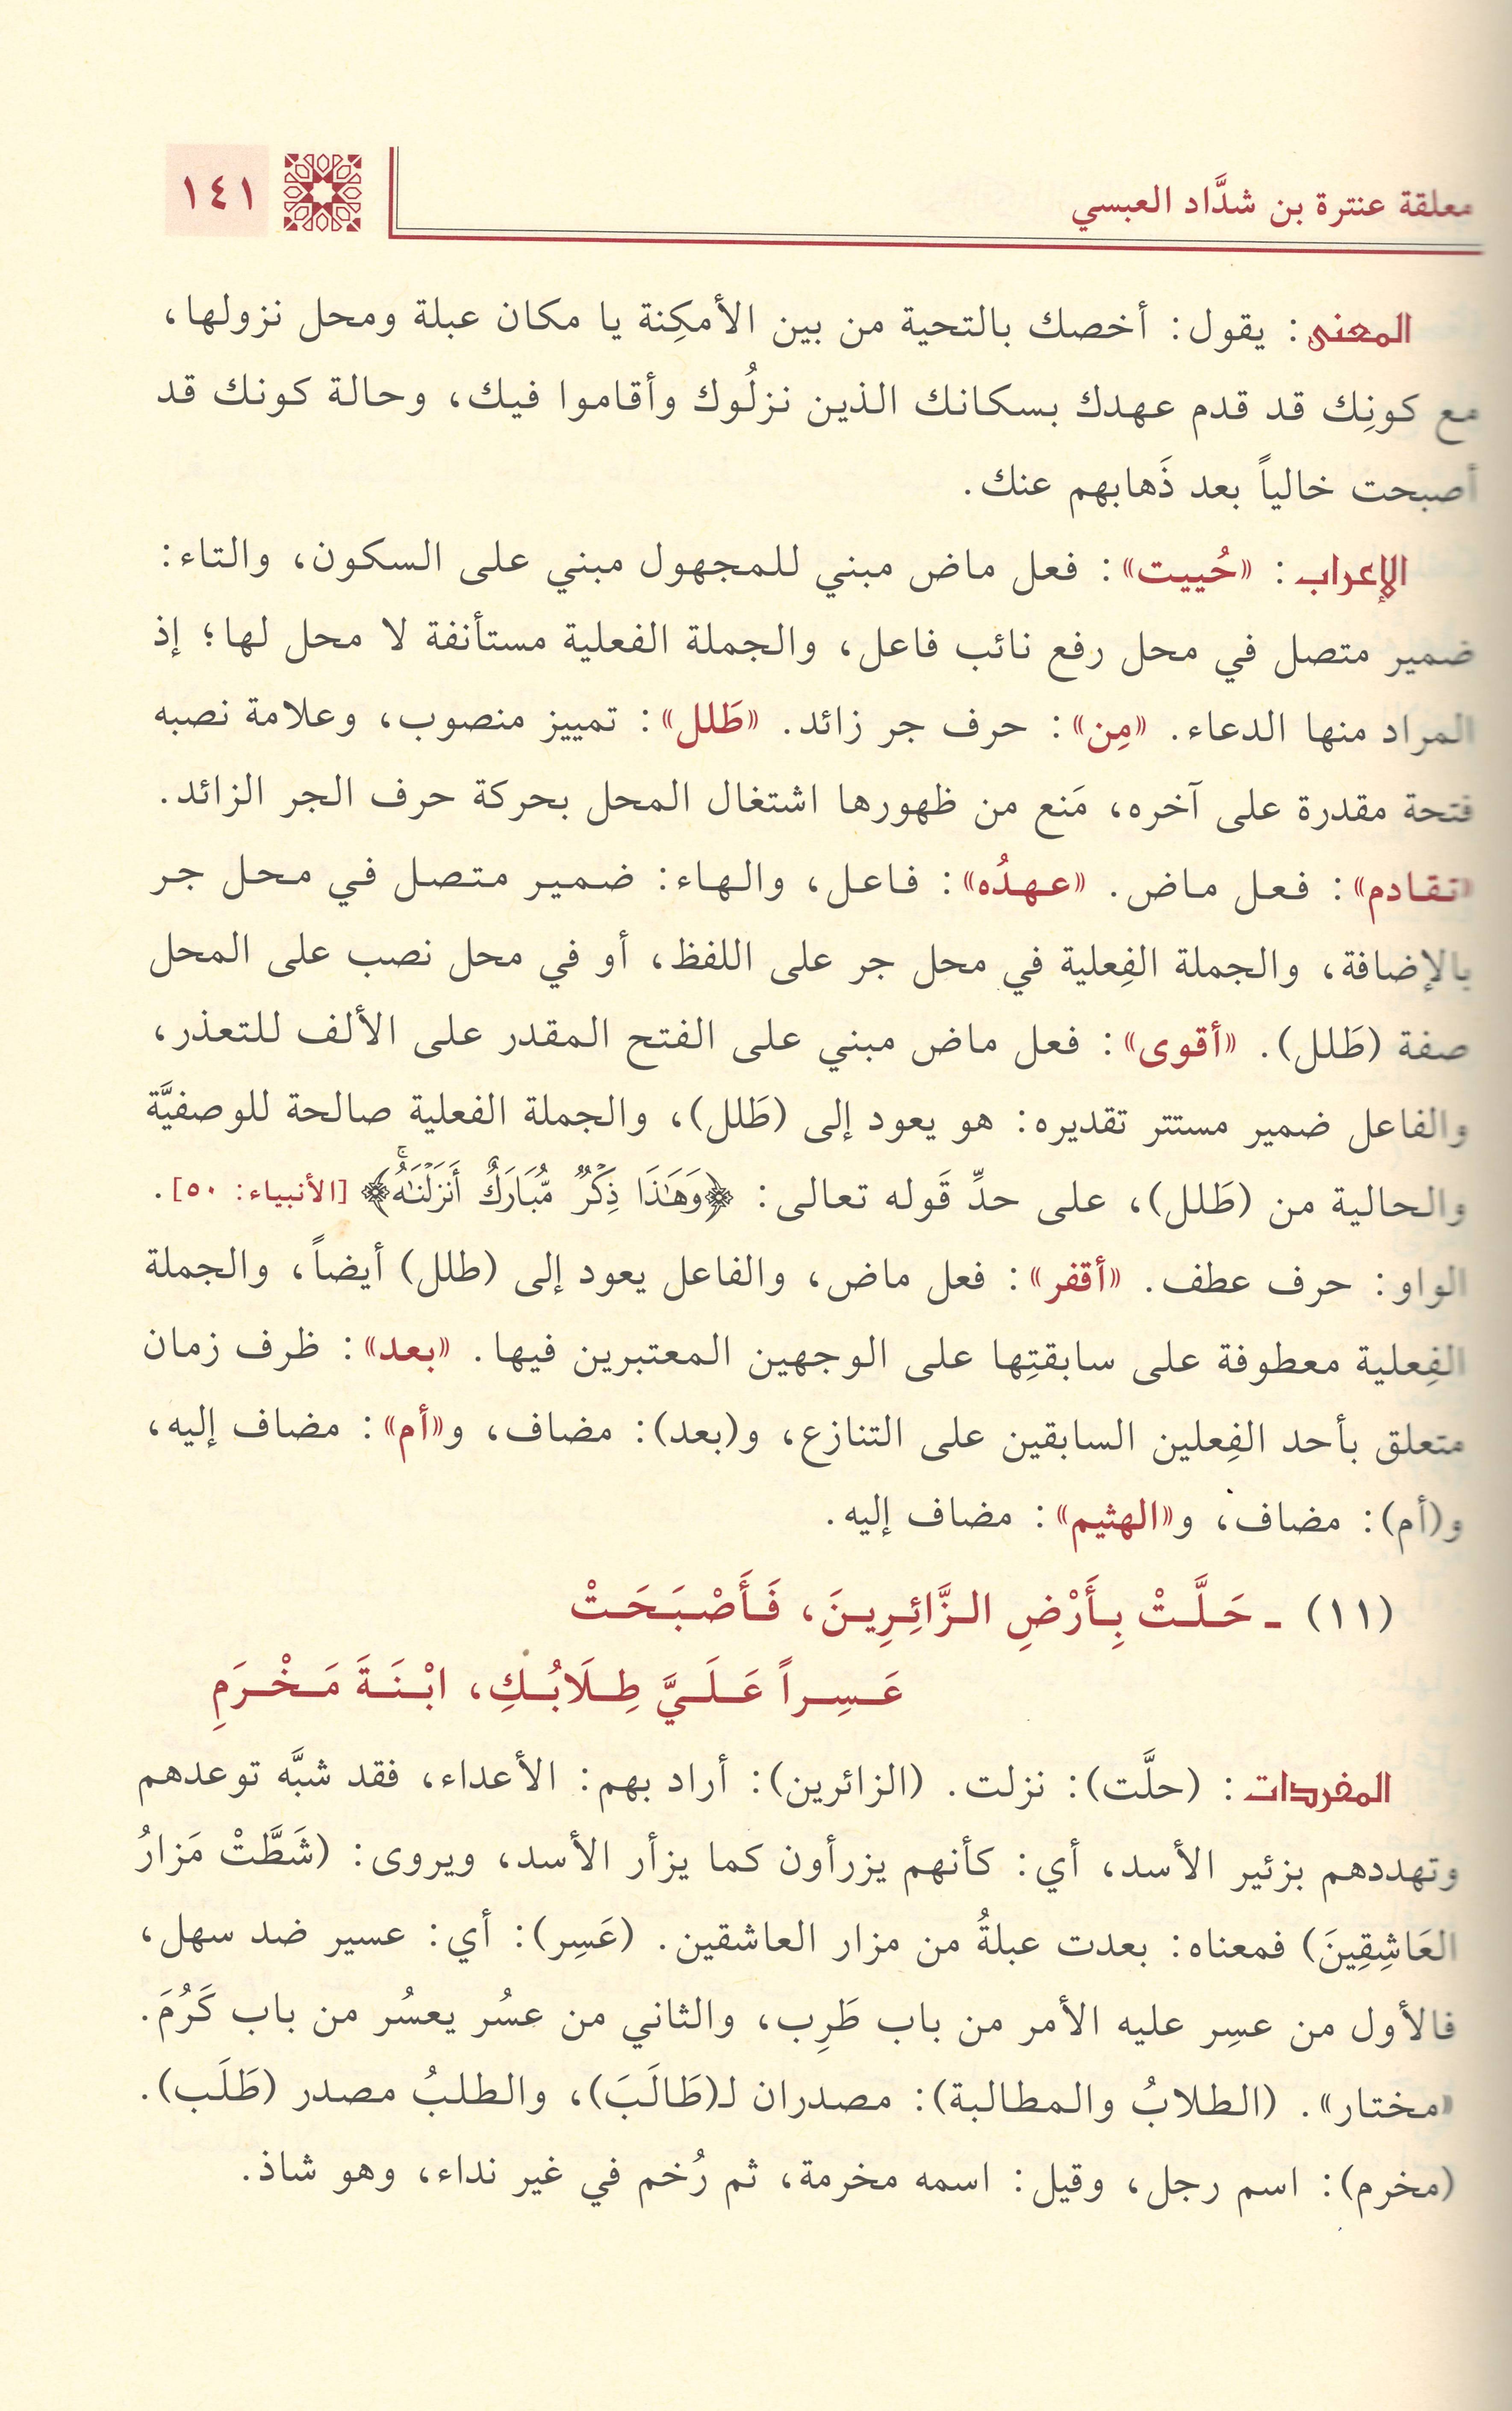 معلقة عنترة بن شدَّاد العبسي
١٤١
المعنى: يقول: أخصك بالتحية من بين الأمكِنة يا مكان عبلة ومحل نزولها،
مع كونِك قد قدم عهدك بسكانك الذين نزلُوك وأقاموا فيك، وحالة كونك قد
أصبحت خالياً بعد ذَهابهم عنك.
الإعراب: «حُييت»: فعل ماض مبني للمجهول مبني على السكون، والتاء:
ضمير متصل في محل رفع نائب فاعل، والجملة الفعلية مستأنفة لا محل لها؛ إذ
المراد منها الدعاء. «مِن»: حرف جر زائد. «طَلل»: تمييز منصوب، وعلامة نصبه
فتحة مقدرة على آخره، مَنع من ظهورها اشتغال المحل بحركة حرف الجر الزائد.
«تقادم»: فعل ماض. «عهدُه»: فاعل، والهاء: ضمير متصل في محل جر
بالإضافة، والجملة الفِعلية في محل جر على اللفظ، أو في محل نصب على المحل
صفة (طَلل). «أقوى»: فعل ماض مبني على الفتح المقدر على الألف للتعذر،
والفاعل ضمير مستتر تقديره: هو يعود إلى (طَلل)، والجملة الفعلية صالحة للوصفيَّة
والحالية من (طَلل)، على حدِّ قَوله تعالى: ﴿وَهَٰذَا ذِكْرٌ مُّبَارَكٌ أَنزَلْنَٰهُ ۚ﴾ [الأنبياء: ٥٠].
الواو: حرف عطف. «أقفر»: فعل ماض، والفاعل يعود إلى (طلل) أيضاً، والجملة
الفِعلية معطوفة على سابقتِها على الوجهين المعتبرين فيها. «بعد»: ظرف زمان
متعلق بأحد الفِعلين السابقين على التنازع، و(بعد): مضاف، و«أم»: مضاف إليه،
و(أم): مضاف، و«الهثيم»: مضاف إليه.
(١١) ـ حَلَّتْ بِأَرْضِ الزَّائِرِينَ، فَأَصْبَحَتْ
عَسِراً عَلَيَّ طِلَابُكِ، ابْنَةَ مَخْرَمِ
المفردات: (حلَّت): نزلت. (الزائرين): أراد بهم: الأعداء، فقد شبَّه توعدهم
وتهددهم بزئير الأسد، أي: كأنهم يزرأون كما يزأر الأسد، ويروى: (شَطَّتْ مَزارُ
العَاشِقِينَ) فمعناه: بعدت عبلةُ من مزار العاشقين. (عَسِر): أي: عسير ضد سهل،
فالأول من عسِر عليه الأمر من باب طَرِب، والثاني من عسُر يعسُر من باب كَرُمَ.
«مختار». (الطلابُ والمطالبة): مصدران لـ(طَالَبَ)، والطلبُ مصدر (طَلَب).
(مخرم): اسم رجل، وقيل: اسمه مخرمة، ثم رُخم في غير نداء، وهو شاذ.